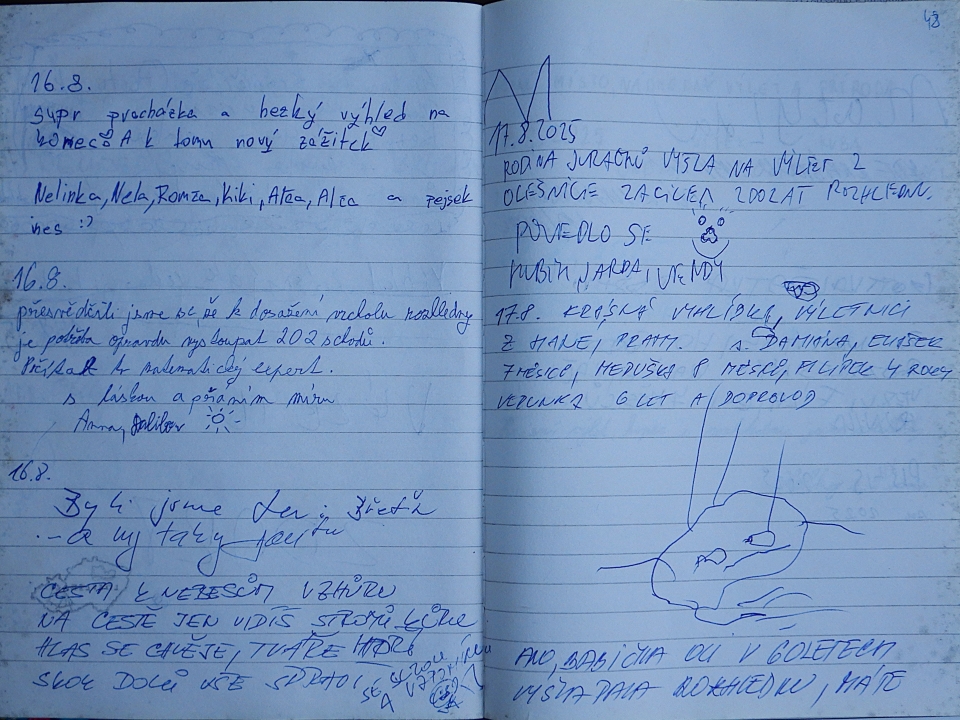 16.8.
supr procházka a hezký výhled na
konec A k tomu nový zážitek
Nelinka, Nela, Romča, Kiki, Alča, Alča a pejsek
nes :)
16.8.
přesvědčili jsme se, že k dosažení vrcholu rozhledny
je potřeba opravdu vystoupat 202 schodů.
Počítal to matematický expert.
s láskou a přáním míru
Anna, Dalibor
16.8.
Byli jsme
- a my taky
CESTA K NEBESŮM VZHŮRU
NA CESTĚ JEN VIDÍŠ STROMŮ KŮRU
HLAS SE CHVĚJE, TVÁŘE
SKOK DOLŮ VŠE SPRAVÍ
48
17.8.2025
RODINA JURAČKŮ VYŠLA NA VÝLET Z
OLEŠNICE ZA CÍLEM ZDOLAT ROZHLEDNU.
POVEDLO SE
KUBÍK, JARDA, VENDY
17.8. KRÁSNÁ VYHLÍDKA, VÝLETNÍCI
Z HANÉ, PRAHY. DAMIÁNA, ELIŠEK
7 MĚSÍCŮ, MEDUŠKA 8 MĚSÍCŮ, FILÍPEK 4 ROKY
VERUNKA 6 LET A DOPROVOD
ANO, BABIČKA OLI V 60 LETECH
VYŠLAPALA ROZHLEDNU, MÁTE